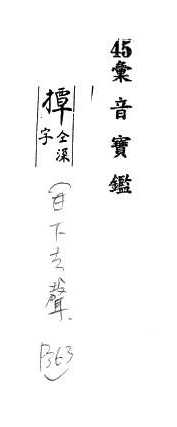 45彙音寶鑑
撢仝深字
(甘下去聲.
P363)